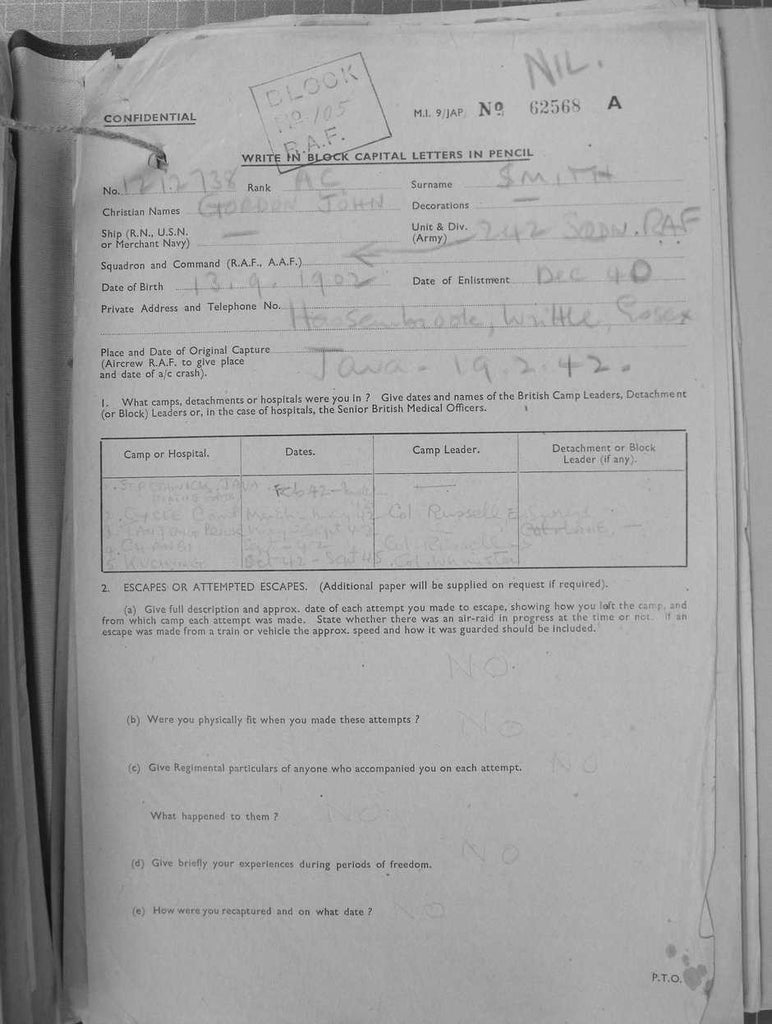 NIL.
BLOCK
No 105
R.A.F.
CONFIDENTIAL
M.I. 9/JAP No 62568 A
WRITE IN BLOCK CAPITAL LETTERS IN PENCIL
No. 1212738 Rank AC Surname SMITH
Christian Names GORDON JOHN Decorations —
Ship (R.N., U.S.N. or Merchant Navy) — Unit & Div. (Army) 242 SQDN. RAF
Squadron and Command (R.A.F., A.A.F.)
Date of Birth 13.9.1902 Date of Enlistment Dec 40
Private Address and Telephone No.
Writtle, Essex
Place and Date of Original Capture
(Aircrew R.A.F. to give place
and date of a/c crash).
Java - 19.2.42.
1. What camps, detachments or hospitals were you in ? Give dates and names of the British Camp Leaders, Detachment
(or Block) Leaders or, in the case of hospitals, the Senior British Medical Officers.
Camp or Hospital. Dates. Camp Leader. Detachment or Block
Leader (if any).
JAVA Feb 42 —
CYCLE Camp Col Russell
May - Sept —
CHANGI Sept - 42 Col Russell
KUCHING Oct 42 - Sept 45 Col
2. ESCAPES OR ATTEMPTED ESCAPES. (Additional paper will be supplied on request if required).
(a) Give full description and approx. date of each attempt you made to escape, showing how you left the camp, and
from which camp each attempt was made. State whether there was an air-raid in progress at the time or not. If an
escape was made from a train or vehicle the approx. speed and how it was guarded should be included.
NO.
(b) Were you physically fit when you made these attempts ? NO
(c) Give Regimental particulars of anyone who accompanied you on each attempt. NO
What happened to them ? NO
(d) Give briefly your experiences during periods of freedom. NO
(e) How were you recaptured and on what date ? NO
P.T.O.